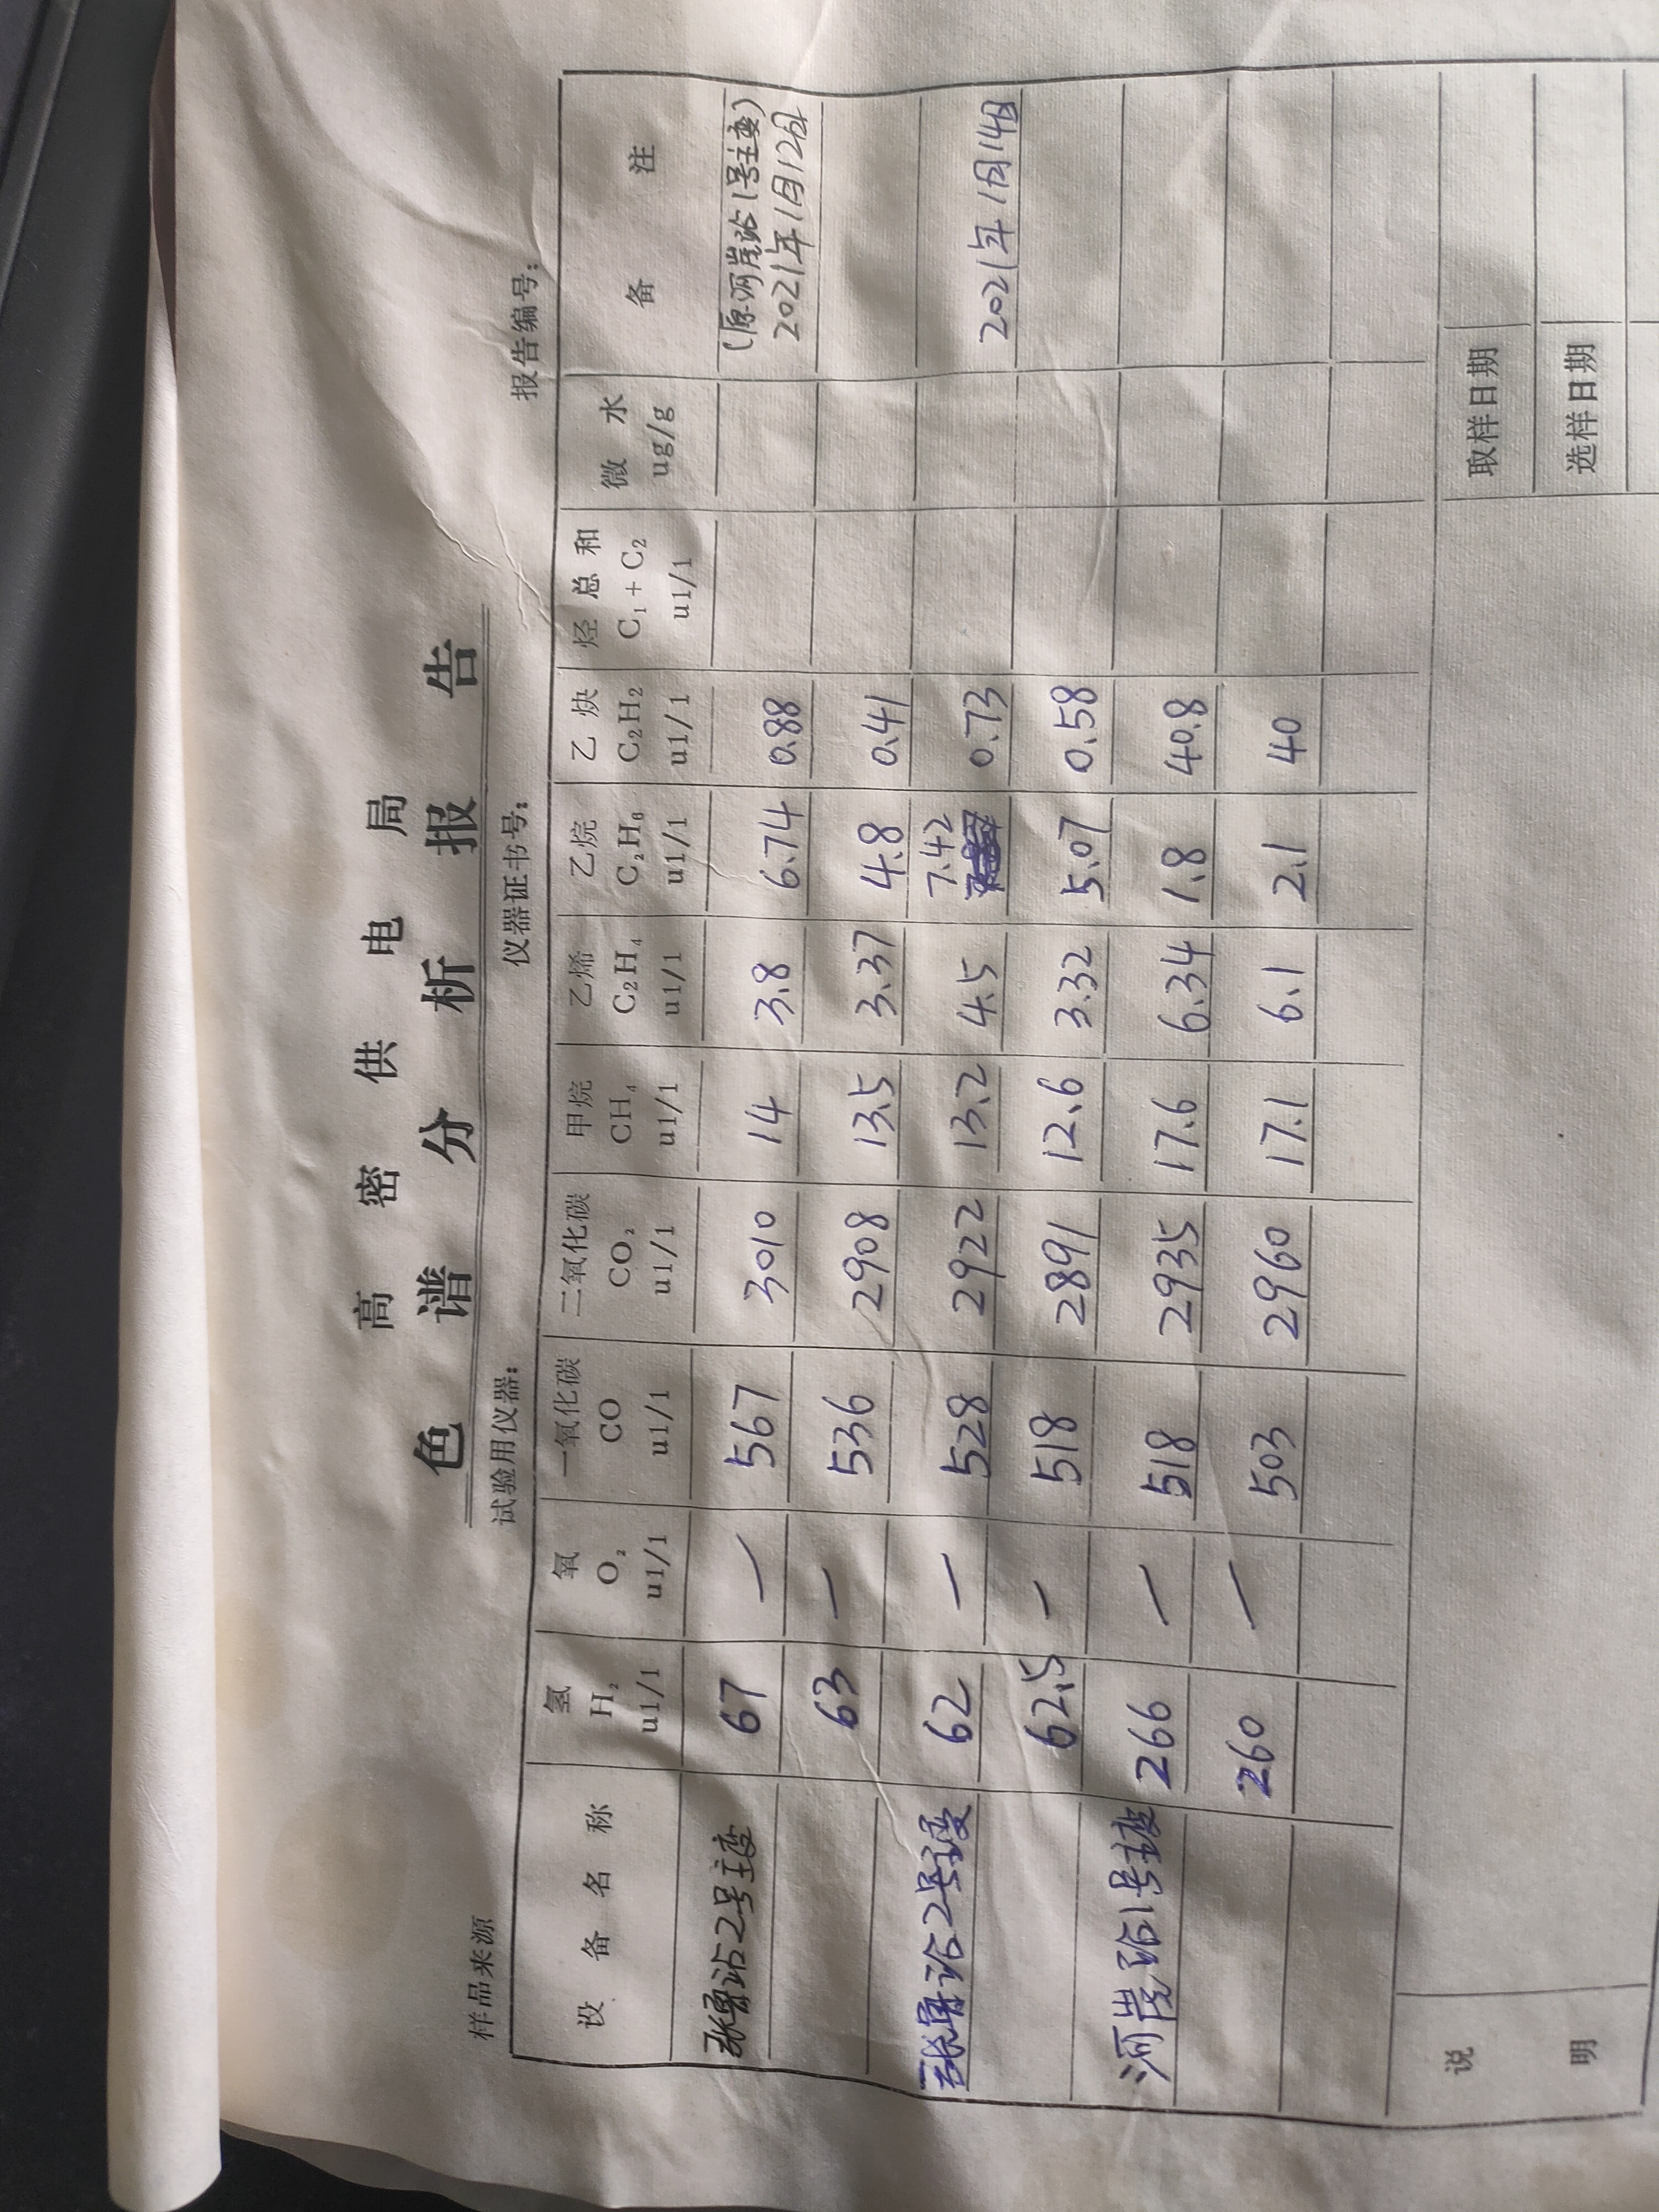 高密供电局
色谱分析报告
样品来源 试验用仪器: 仪器证书号: 报告编号:
设备名称 氢 H₂ ul/l 氧 O₂ ul/l 一氧化碳 CO ul/l 二氧化碳 CO₂ ul/l 甲烷 CH₄ ul/l 乙烯 C₂H₄ ul/l 乙烷 C₂H₆ ul/l 乙炔 C₂H₂ ul/l 烃总和 C₁+C₂ ul/l 微水 ug/g 备注
张鲁站2号主变 67 — 567 3010 14 3.8 6.74 0.88 (原河崖站1号主变) 2021年1月12日
63 — 536 2908 13.5 3.37 4.8 0.41
张鲁站2号主变 62 — 528 2922 13.2 4.5 7.42 0.73 2021年1月14日
62.5 — 518 2891 12.6 3.32 5.07 0.58
河崖站1号主变 266 — 518 2935 17.6 6.34 1.8 40.8
260 — 503 2960 17.1 6.1 2.1 40
说明 取样日期
选样日期